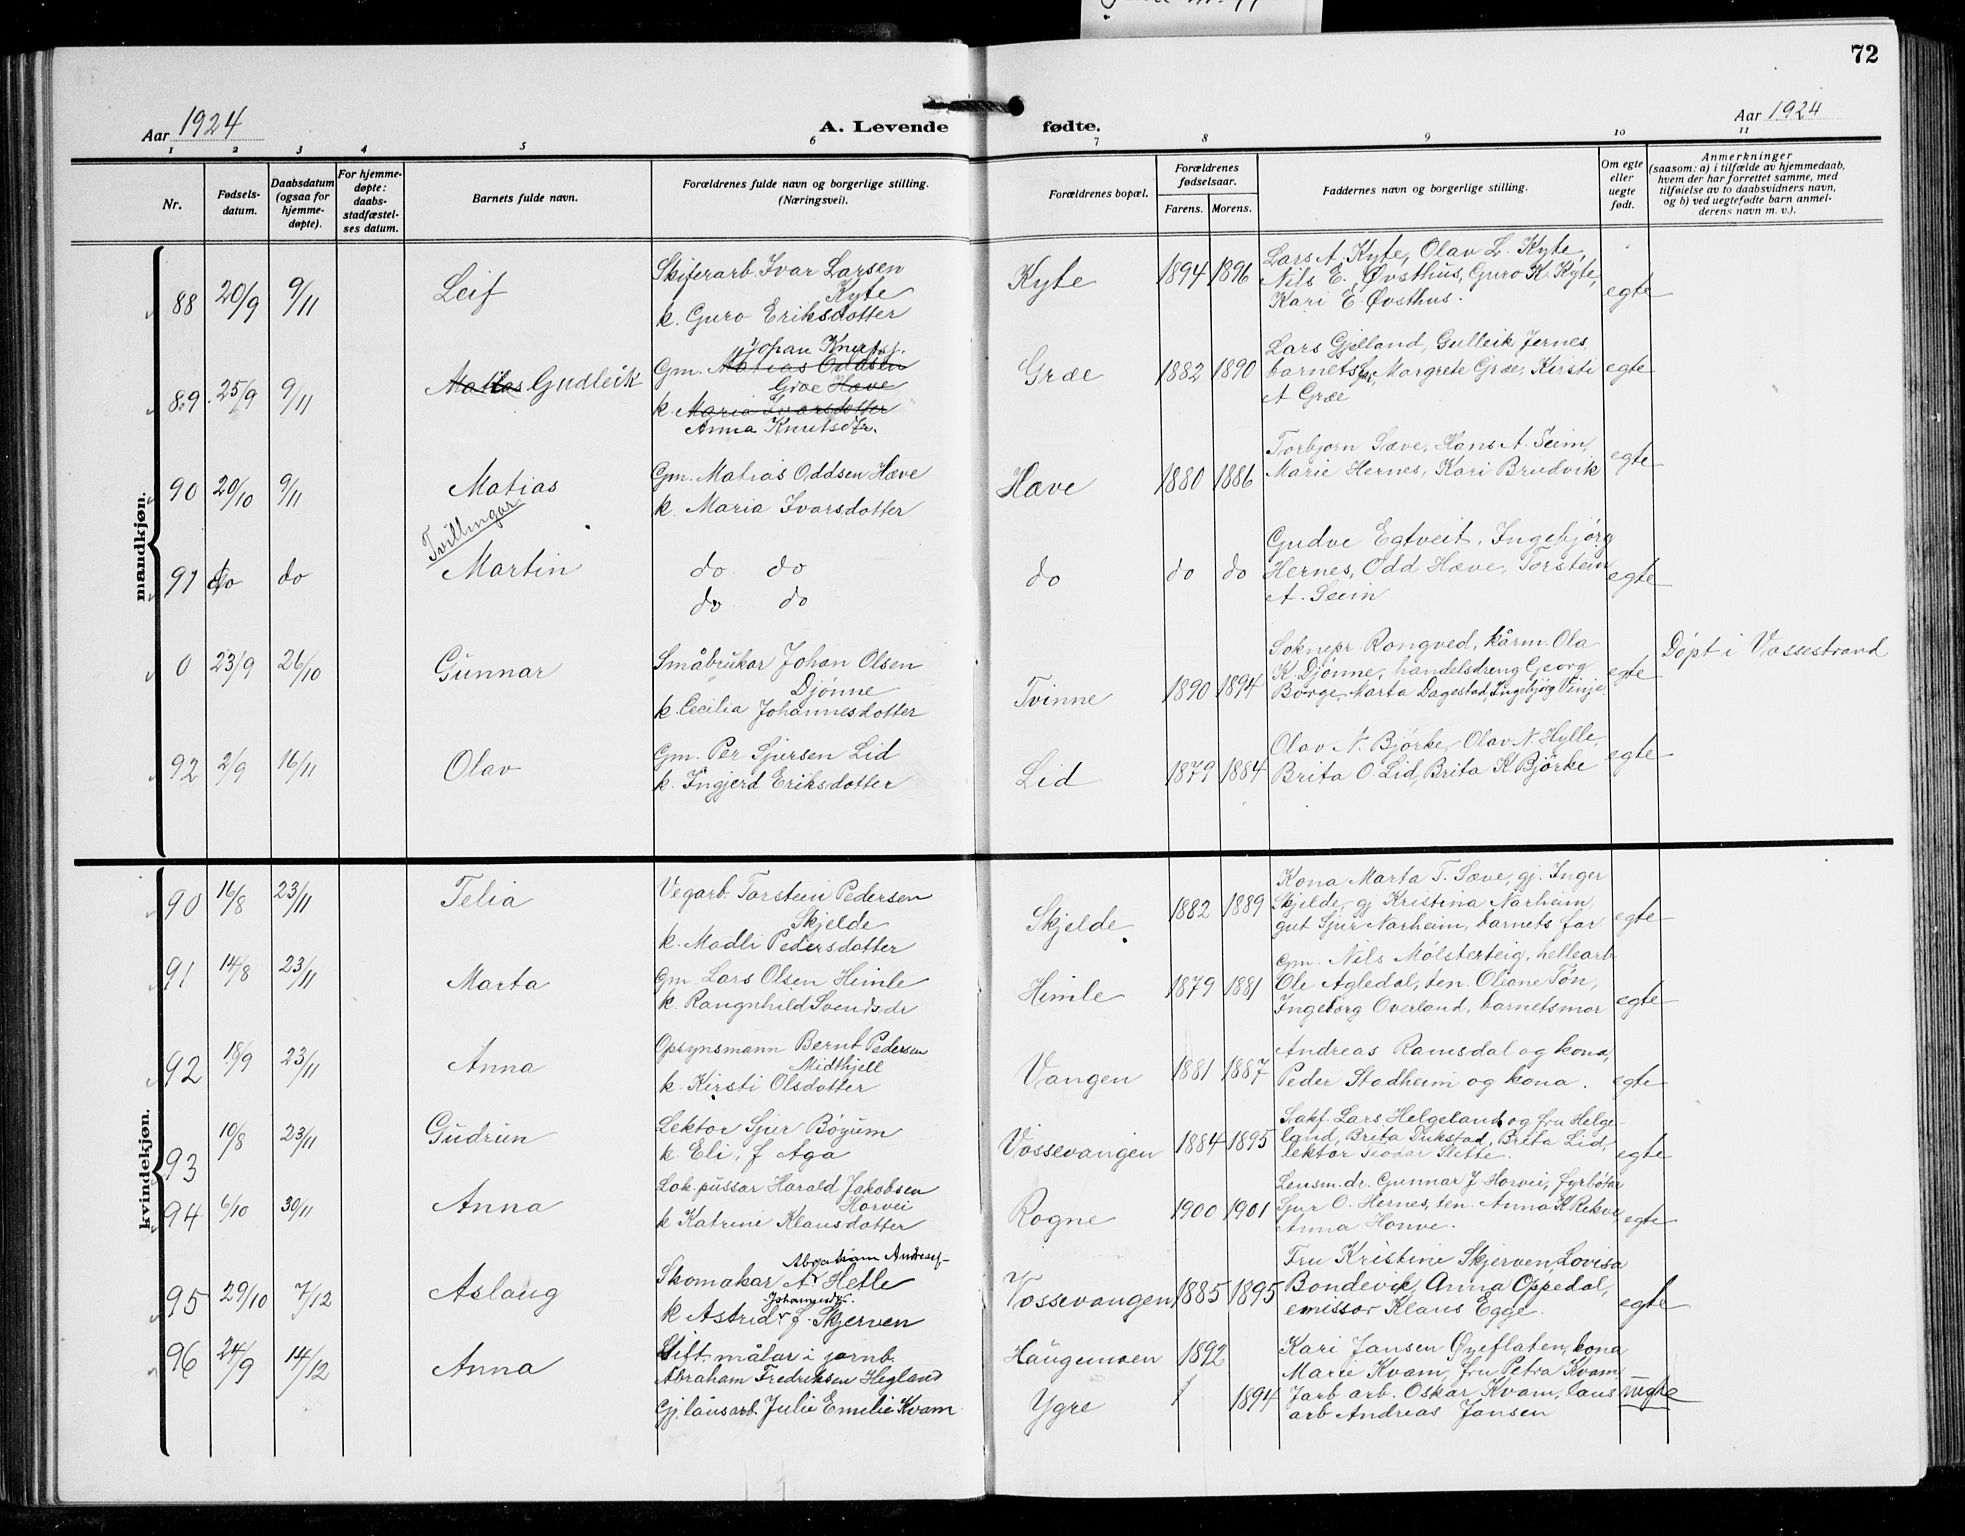 72
Aar 1924
A. Levende
fødte.
Aar 1924
1 2 3 4 5 6 7 8 9 10 11
Nr.
Fødsels-
datum.
Daabsdatum
(ogsaa for
hjemme-
døpte).
For hjemme-
døpte:
daabs-
stadfæstel-
ses datum.
Barnets fulde navn.
Forældrenes fulde navn og borgerlige stilling.
(Næringsvei).
Forældrenes bopæl.
Forældrenes
fødselsaar.
Farens. Morens.
Faddernes navn og borgerlige stilling.
Om egte
eller
uegte
født.
Anmerkninger
(saasom: a) i tilfælde av hjemmedaab,
hvem der har forrettet samme, med
tilføielse av to daabsvidners navn,
og b) ved uegtefødte barn anmel-
derens navn m. v.).
mandkjøn.
88 20/9 9/11 Leif
Skiferarb. Ivar Larsen
Kyte
k. Guro Eriksdotter
Kyte 1894 1896
Lars A. Kyte, Olav L. Kyte
Nils E. Øvsthus, Guro K. Kyte,
Kari E. Øvsthus.
egte
89 25/9 9/11 Matias Gudleik
Johan Knuts.
Gm. Matias Oddsen
Græ Hæve
k. Maria Ivarsdotter
Anna Knutsdr.
Græ 1882 1890
Lars Gjelland, Gulleik Jernes
barnets far, Margrete Græ, Kersti
A Græe
egte
90 20/10 9/11 Matias
Gm. Matias Oddsen Hæve
k. Maria Ivarsdotter
Hæve 1880 1886
Torbjørn Sæve, Hans A. Seim,
Marie Hernes, Kari Brudvik
egte
Tvillingar
91 do do Martin
do do
do do
do do do
Gudve Egtveit, Ingebjørg
Hernes, Odd Hæve, Torstein
A. Seim
egte
0 23/9 26/10 Gunnar
Småbrukar Johan Olsen
Djønne
k. Cecilia Johannesdotter
Tvinne 1890 1894
Soknepr Rongved, kårm. Ola
K. Djønne, handelsdreng Georg
Børge, Marta Dagestad, Ingebjørg Vinje
egte
Døpt i Vossestrand
92 2/9 16/11 Olav
Gm. Per Sjursen Lid
k. Ingjerd Eriksdotter
Lid 1879 1884
Olav N. Bjørke, Olav N. Hylle,
Brita O. Lid, Brita K. Bjørke
egte
kvindekjøn.
90 16/8 23/11 Telia
Vegarb. Torstein Pedersen
Skjelde
k. Madli Pedersdotter
Skjelde 1882 1889
Kona Marta T. Sæve, gj. Inger
Skjelde, gj Kristina Narheim,
gut Sjur Narheim, barnets far
egte
91 14/8 23/11 Marta
Gm. Lars Olsen Himle
k. Rangnhild Svendsdr
Himle 1879 1881
Gm. Nils Mølsterteig, hellearb
Ole Agledal, ten. Oliane Tøn,
Ingeborg Overland, barnets mor
egte
92 18/9 23/11 Anna
Opsynsmann Bernt Pedersen
Midthjell
k. Kirsti Olsdotter
Vangen 1881 1887
Andreas Ramsdal og kona,
Peder Stadheim og kona.
egte
93 10/8 23/11 Gudrun
Lektor Sjur Bøyum
k. Eli, f Aga
Vossevangen 1884 1895
Sakf. Lars Helgeland og fru Helge-
land, Brita Dukstad, Brita Lid,
lektor Teodar Slette.
egte
94 6/10 30/11 Anna
Lok.pussar Harald Jakobsen
Horvei
k Katrine Klausdotter
Rogne 1900 1901
Lensm. dr. Gunnar J. Horvei, fyrbøtar
Sjur O. Hernes, ten. Anna K Rekve,
Anna Honve.
egte
95 29/10 7/12 Aslaug
Abraham Andreas-
Skomakar A. Helle
Johannesdr.
k Astrid f. Skjerven
Vossevangen 1885 1895
Fru Kristine Skjerven, Lovisa
Bondevik, Anna Oppedal,
emissær Klaus Egge.
egte
96 24/9 14/12 Anna
Stift. målar i jernb.
Abraham Fredriksen Hegland
Gj. lausarb. Julie Emilie Kvam
Haugemoen 1892
Ygre 1894
Kari Jansen Øyeflaten, kona
Marie Kvam, fru Petra Kvam,
Jarb arb. Oskar Kvam, laus
arb Andreas Jansen
uegte